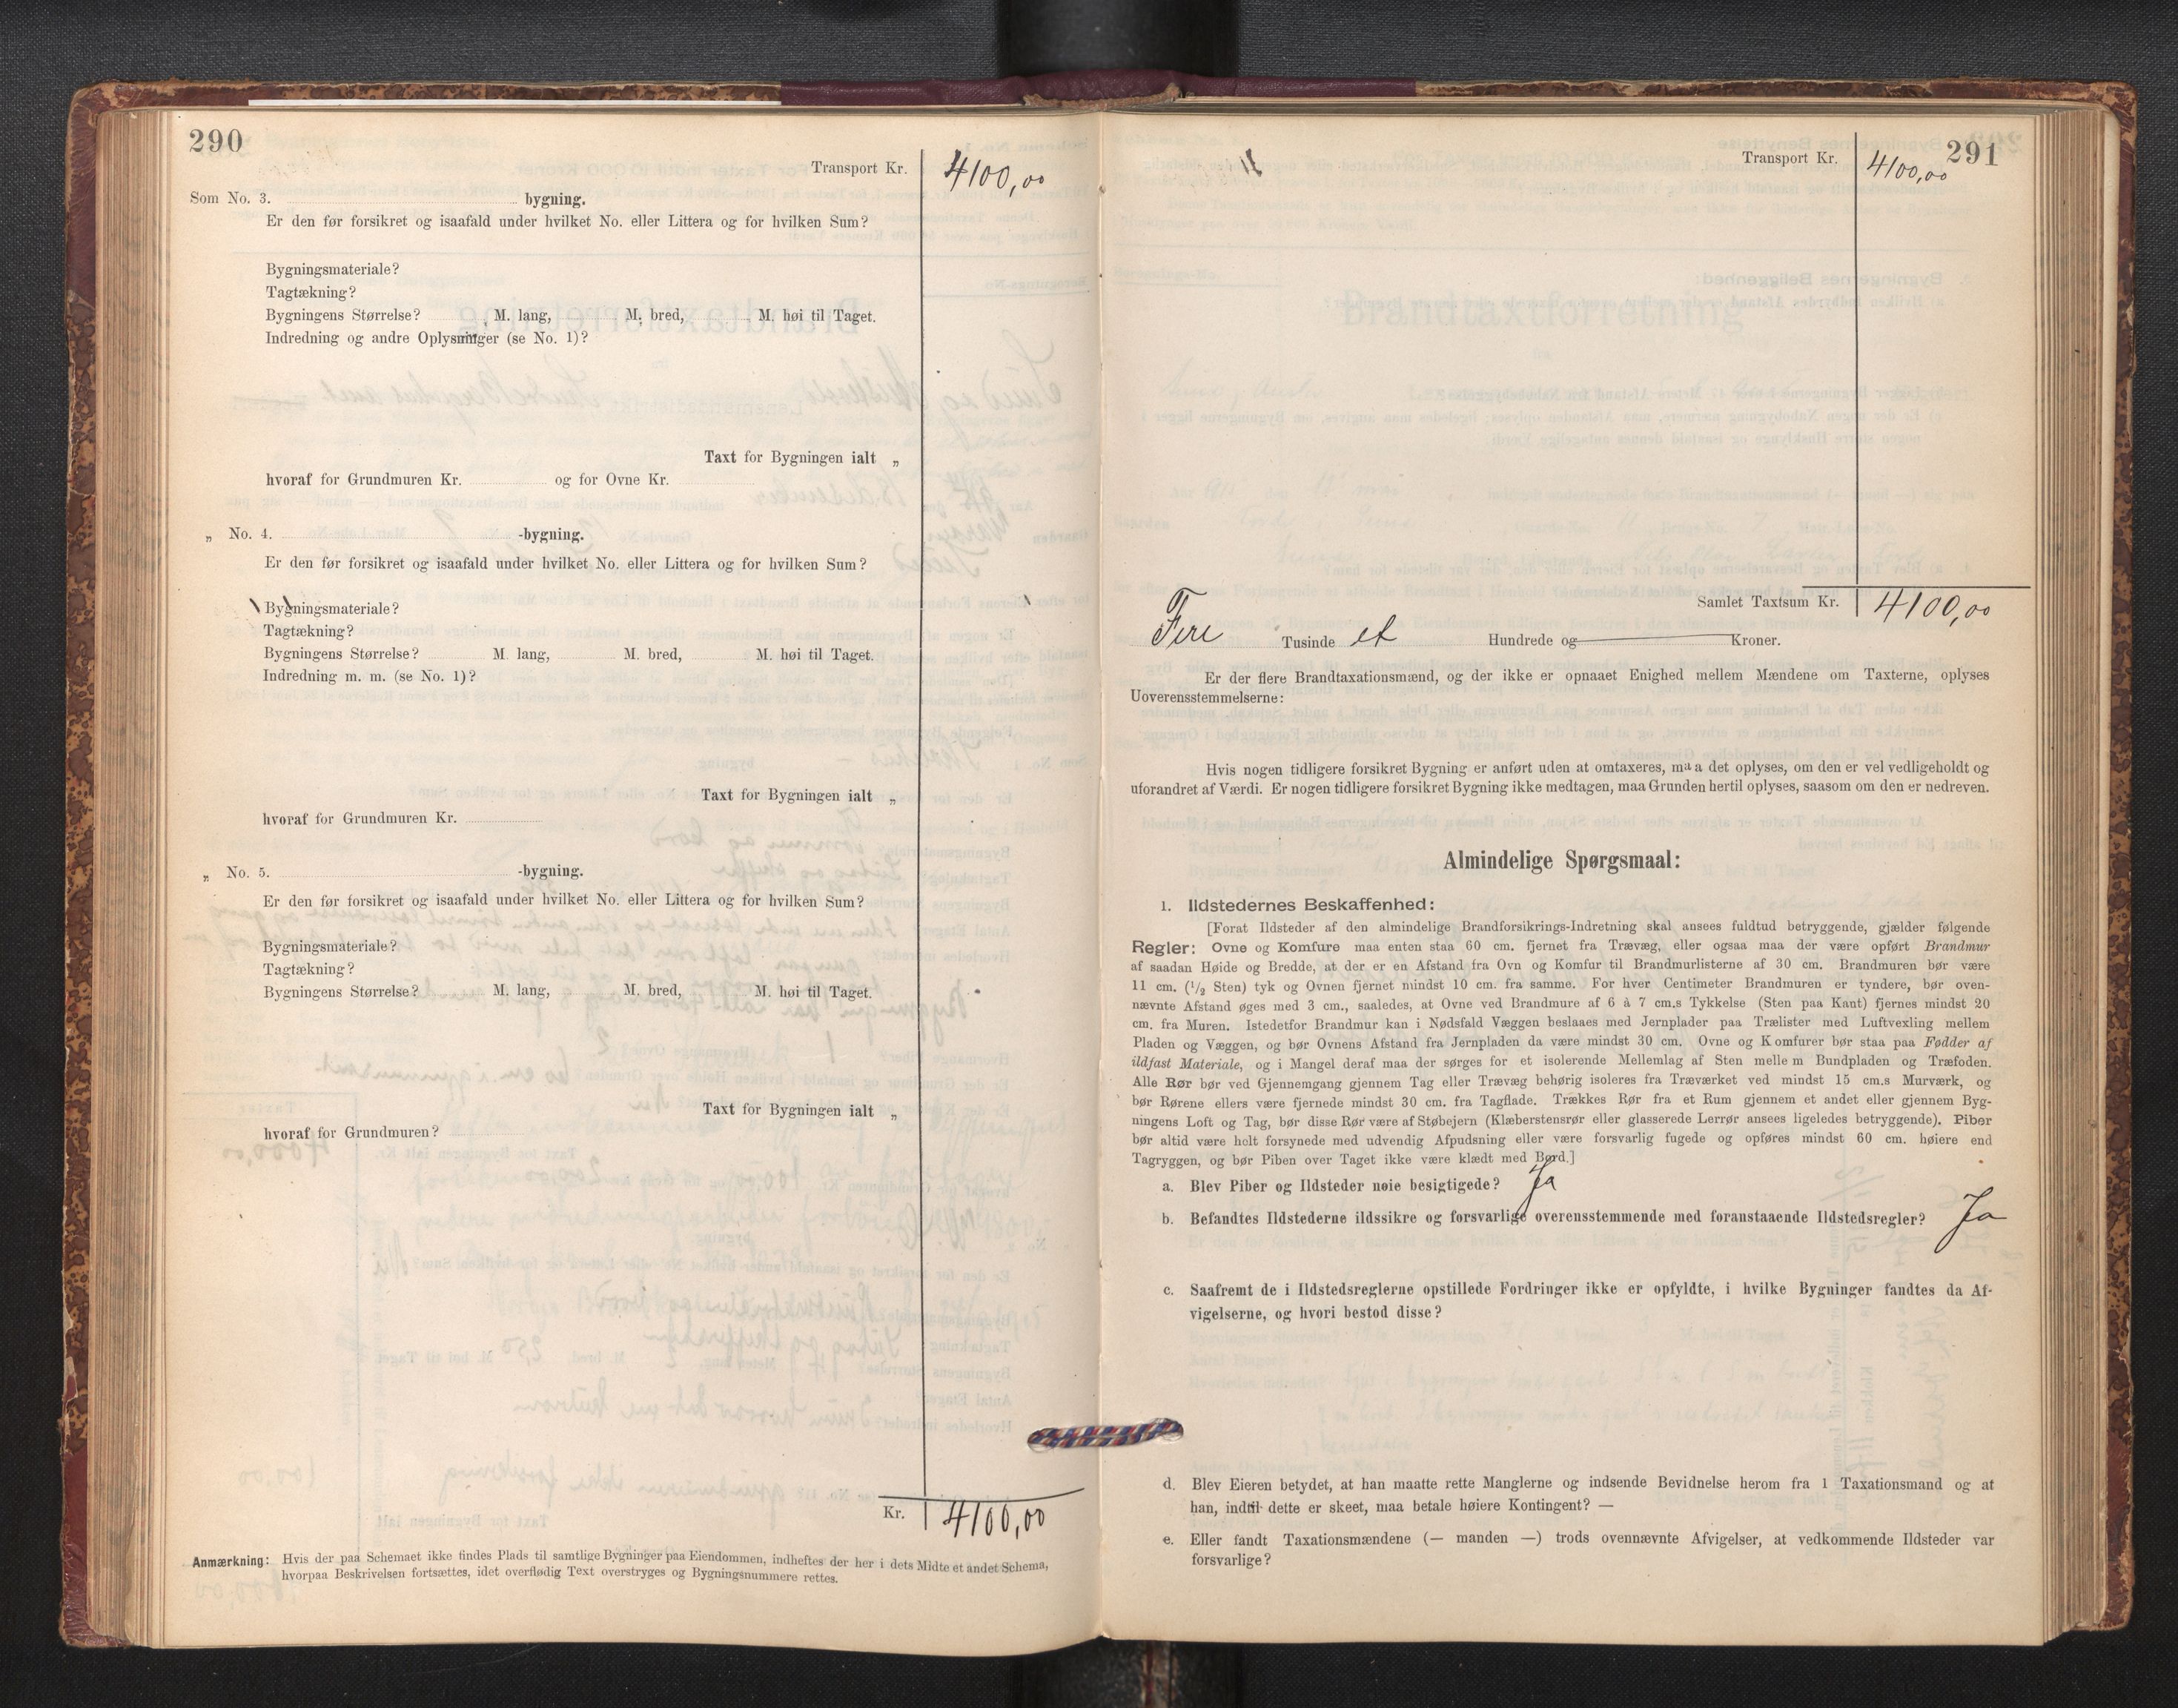 290
Transport Kr. 4100,00
Som No. 3. bygning.
Er den før forsikret og isaafald under hvilket No. eller Littera og for hvilken Sum?
Bygningsmateriale?
Tagtækning?
Bygningens Størrelse? M. lang, M. bred, M. høi til Taget.
Indredning og andre Oplysninger (se No. 1)?
Taxt for Bygningen ialt „
hvoraf for Grundmuren Kr. og for Ovne Kr.
„ No. 4. -bygning.
Er den før forsikret og isaafald under hvilket No. eller Littera og for hvilken Sum?
Bygningsmateriale?
Tagtækning?
Bygningens Størrelse? M. lang, M. bred, M. høi til Taget.
Indredning m. m. (se No. 1)?
Taxt for Bygningen ialt „
hvoraf for Grundmuren Kr.
„ No. 5. -bygning.
Er den før forsikret og isaafald under hvilket No. eller Littera og for hvilken Sum?
Bygningsmateriale?
Tagtækning?
Bygningens Størrelse? M. lang, M. bred, M. høi til Taget.
Taxt for Bygningen ialt „
hvoraf for Grundmuren?
Kr. 4100,00
Anmærkning: Hvis der paa Schemaet ikke findes Plads til samtlige Bygninger paa Eiendommen, indheftes der her i dets Midte et andet Schema,
hvorpaa Beskrivelsen fortsættes, idet overflødig Text overstryges og Bygningsnummere rettes.
291
Transport Kr. 4100,00
Samlet Taxtsum Kr. 4100,00
Fire Tusinde et Hundrede og Kroner.
Er der flere Brandtaxationsmænd, og der ikke er opnaaet Enighed mellem Mændene om Taxterne, oplyses
Uoverensstemmelserne:
Hvis nogen tidligere forsikret Bygning er anført uden at omtaxeres, maa det oplyses, om den er vel vedligeholdt og
uforandret af Værdi. Er nogen tidligere forsikret Bygning ikke medtagen, maa Grunden hertil oplyses, saasom om den er nedreven.
Almindelige Spørgsmaal:
1. Ildstedernes Beskaffenhed:
[Forat Ildsteder af den almindelige Brandforsikrings-Indretning skal ansees fuldtud betryggende, gjælder følgende
Regler: Ovne og Komfure maa enten staa 60 cm. fjernet fra Trævæg, eller ogsaa maa der være opført Brandmur
af saadan Høide og Bredde, at der er en Afstand fra Ovn og Komfur til Brandmurlisterne af 30 cm. Brandmuren bør være
11 cm. (1/2 Sten) tyk og Ovnen fjernet mindst 10 cm. fra samme. For hver Centimeter Brandmuren er tyndere, bør oven-
nævnte Afstand øges med 3 cm., saaledes, at Ovne ved Brandmure af 6 à 7 cm.s Tykkelse (Sten paa Kant) fjernes mindst 20
cm. fra Muren. Istedetfor Brandmur kan i Nødsfald Væggen beslaaes med Jernplader paa Trælister med Luftvexling mellem
Pladen og Væggen, og bør Ovnens Afstand fra Jernpladen da være mindst 30 cm. Ovne og Komfurer bør staa paa Fødder af
ildfast Materiale, og i Mangel deraf maa der sørges for et isolerende Mellemlag af Sten mellem Bundpladen og Træfoden.
Alle Rør bør ved Gjennemgang gjennem Tag eller Trævæg behørig isoleres fra Træværket ved mindst 15 cm.s Murværk, og
bør Rørene ellers være fjernede mindst 30 cm. fra Tagflade. Trækkes Rør fra et Rum gjennem et andet eller gjennem Byg-
ningens Loft og Tag, bør disse Rør være af Støbejern (Klæberstensrør eller glasserede Lerrør ansees ligeledes betryggende). Piber
bør altid være holt forsynede med udvendig Afpudsning eller være forsvarlig fugede og opføres mindst 60 cm. høiere end
Tagryggen, og bør Piben over Taget ikke være klædt med Bord.]
a. Blev Piber og Ildsteder nøie besigtigede? Ja
b. Befandtes Ildstederne ildssikre og forsvarlige overensstemmende med foranstaaende Ildstedsregler? Ja
c. Saafremt de i Ildstedsreglerne opstillede Fordringer ikke er opfyldte, i hvilke Bygninger fandtes da Af-
vigelserne, og hvori bestod disse?
d. Blev Eieren betydet, at han maatte rette Manglerne og indsende Bevidnelse herom fra 1 Taxationsmand og at
han, indtil dette er skeet, maa betale høiere Kontingent? —
e. Eller fandt Taxationsmændene (— manden —) trods ovennævnte Afvigelser, at vedkommende Ildsteder var
forsvarlige?